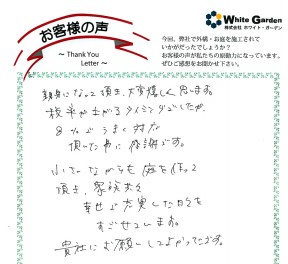 お客様の声
～ Thank You
Letter ～
White Garden
株式会社 ホワイト・ガーデン
今回、弊社で外構・お庭を施工されて
いかがだったでしょうか？
お客様の声が私たちの原動力になっています。
ぜひご感想をお聞かせ下さい。
親身になって頂き、大変嬉しく思います。
税率が上がるタイミングでしたが、
8％でうまく対応
頂いた事に感謝です。
小さいながらも庭を作って
頂き、家族共々
幸せで充実した日々を
すごせています。
貴社にお願いしてよかったです。